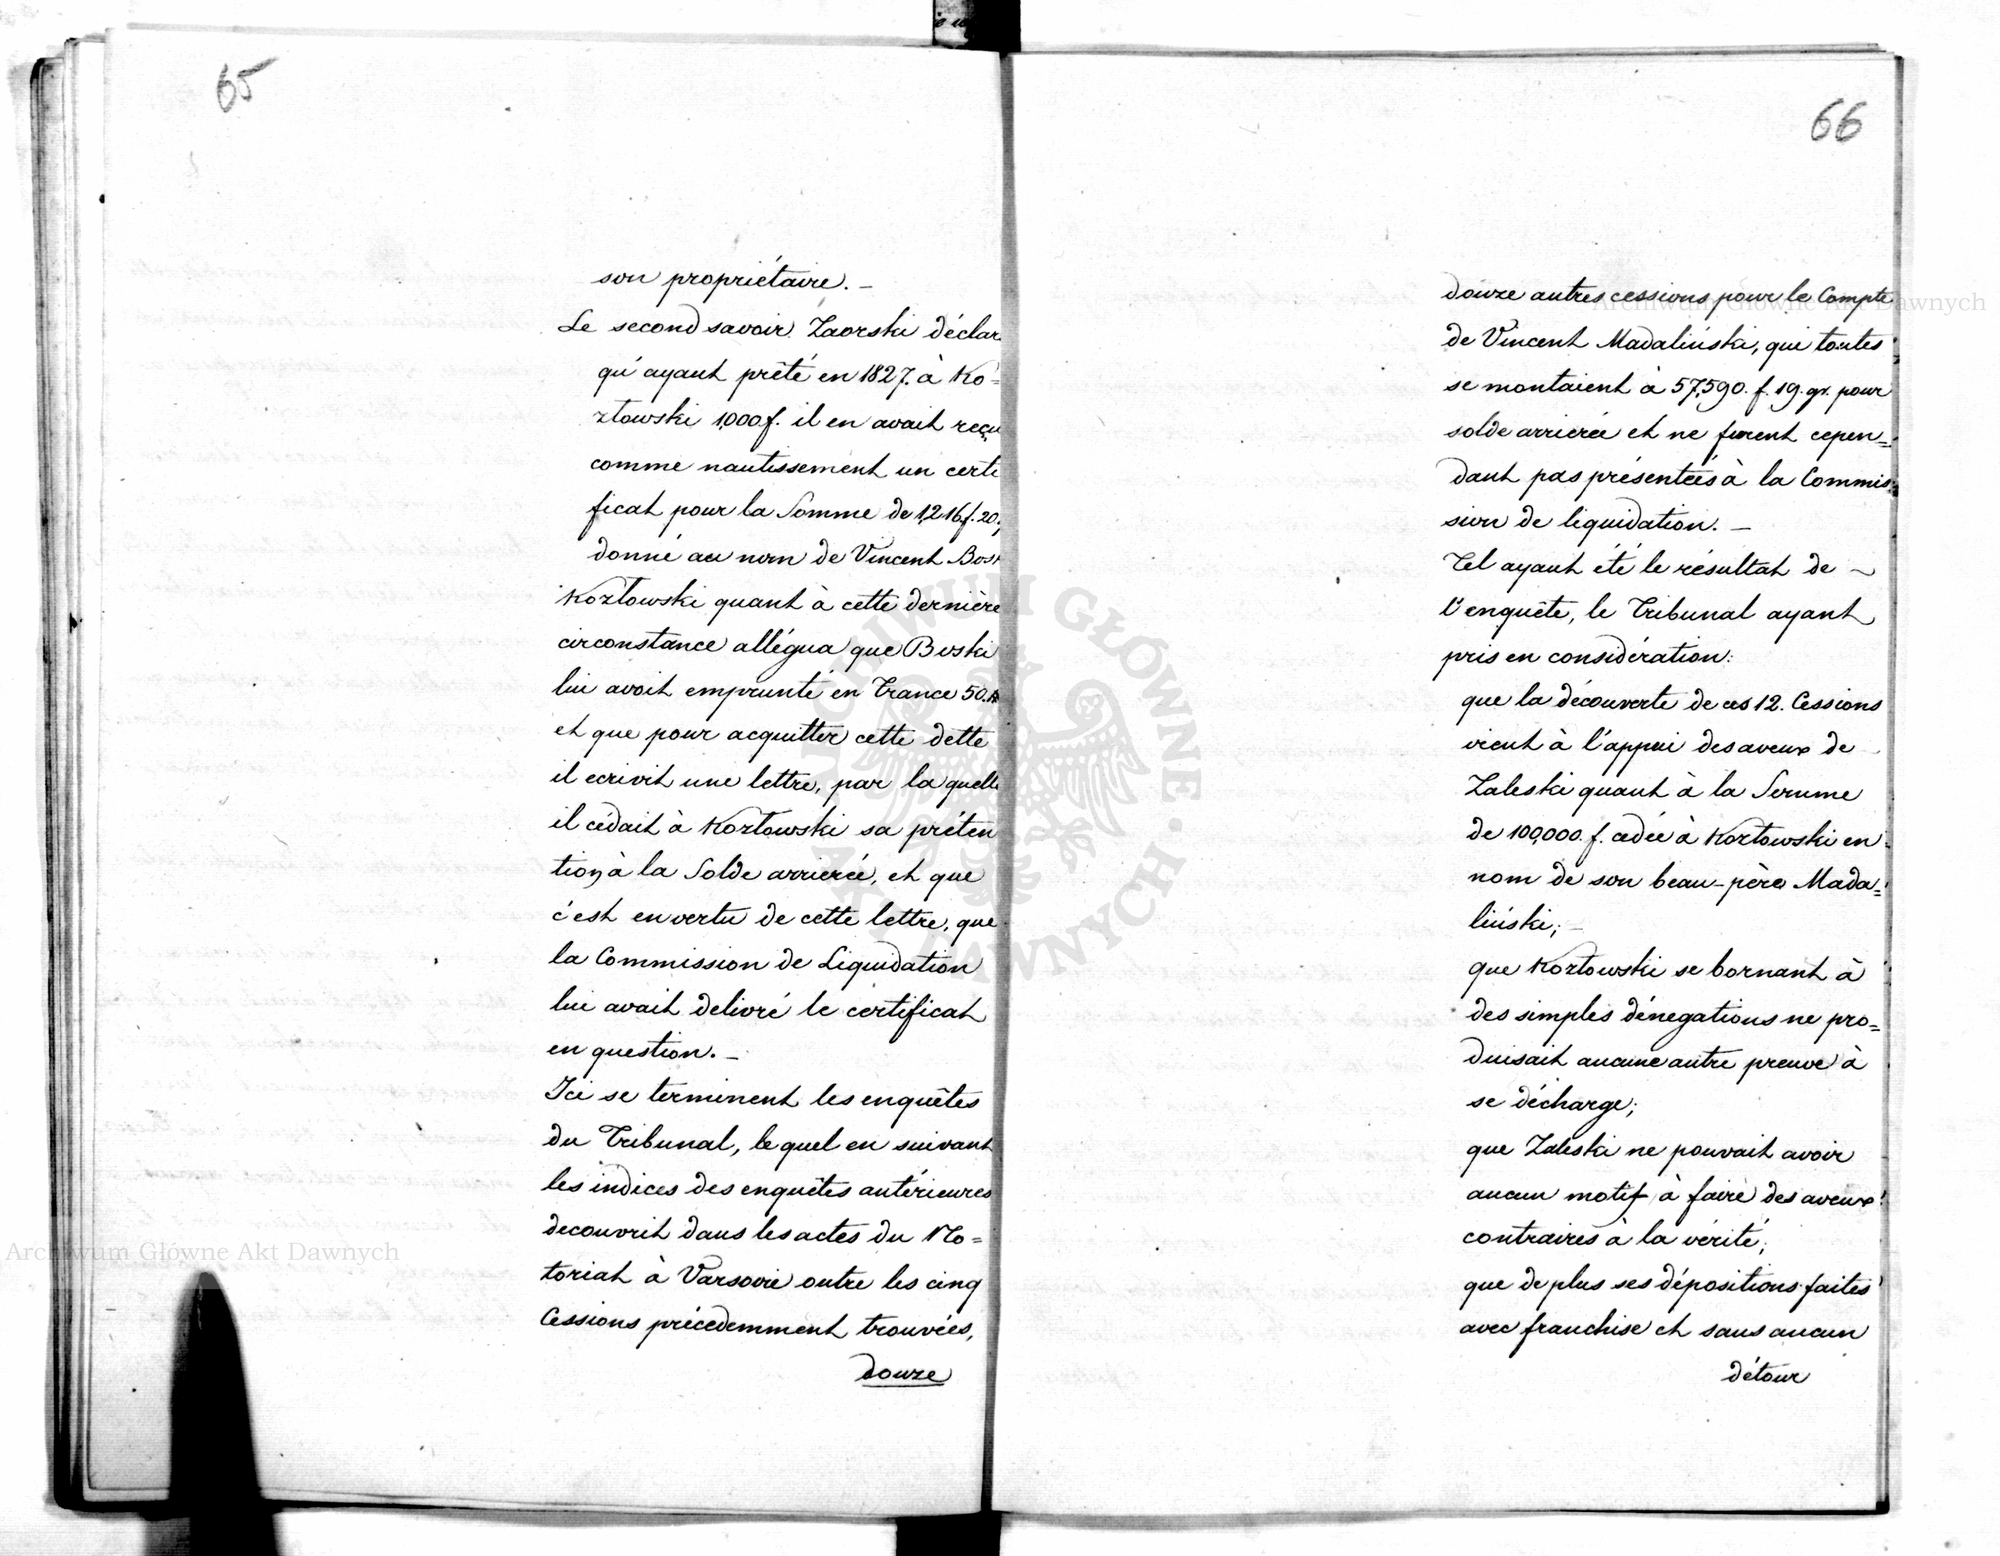 65
son propriétaire. _
Le second savoir Zaorski déclar
qu'ayant prêté en 1827. à Ko=
złowski 1,000 f. il en avait reçu
comme nautissement un certi
ficat pour la Somme de 1,216 f. 20.
donné au nom de Vincent Bos
Kozłowski quant à cette dernière
circonstance allégua que Boski
lui avoit emprunté en France 50.
et que pour acquitter cette dette
il ecrivit une lettre, par la quelle
il cédait à Kozłowski sa préten
tion à la Solde arrierée, et que
c'est en vertu de cette lettre, que
la Commission de Liquidation
lui avait delivré le certificat
en question. _
Ici se terminent les enquêtes
du Tribunal, le quel en suivant
les indices des enquêtes antérieures
decouvrit dans les actes du No=
toriat à Varsovie outre les cinq
Cessions précedemment trouvées,
douze
66
douze autres cessions pour le Compte
de Vincent Madaliński, qui toutes
se montaient à 57,590. f. 19. gr. pour
solde arrierée et ne furent cepen=
dant pas présentées à la Commis=
sion de liquidation. _
Tel ayant été le résultat de
l'enquête, le Tribunal ayant
pris en considération:
que la découverte de ces 12. Cessions
vient à l'appui des aveux de
Zaleski quant à la Somme
de 100,000. f. cedée à Kozłowski en
nom de son beau-père Mada=
liński; _
que Kozłowski se bornant à
des simples dénegations ne pro=
duisait aucune autre preuve à
se décharge;
que Zaleski ne pouvait avoir
aucun motif à faire des aveux
contraires à la vérité;
que de plus ses dépositions faites
avec franchise et sans aucun
détour
Archiwum Główne Akt Dawnych
Archiwum Główne Akt Dawnych
ARCHIWUM GŁÓWNE AKT DAWNYCH